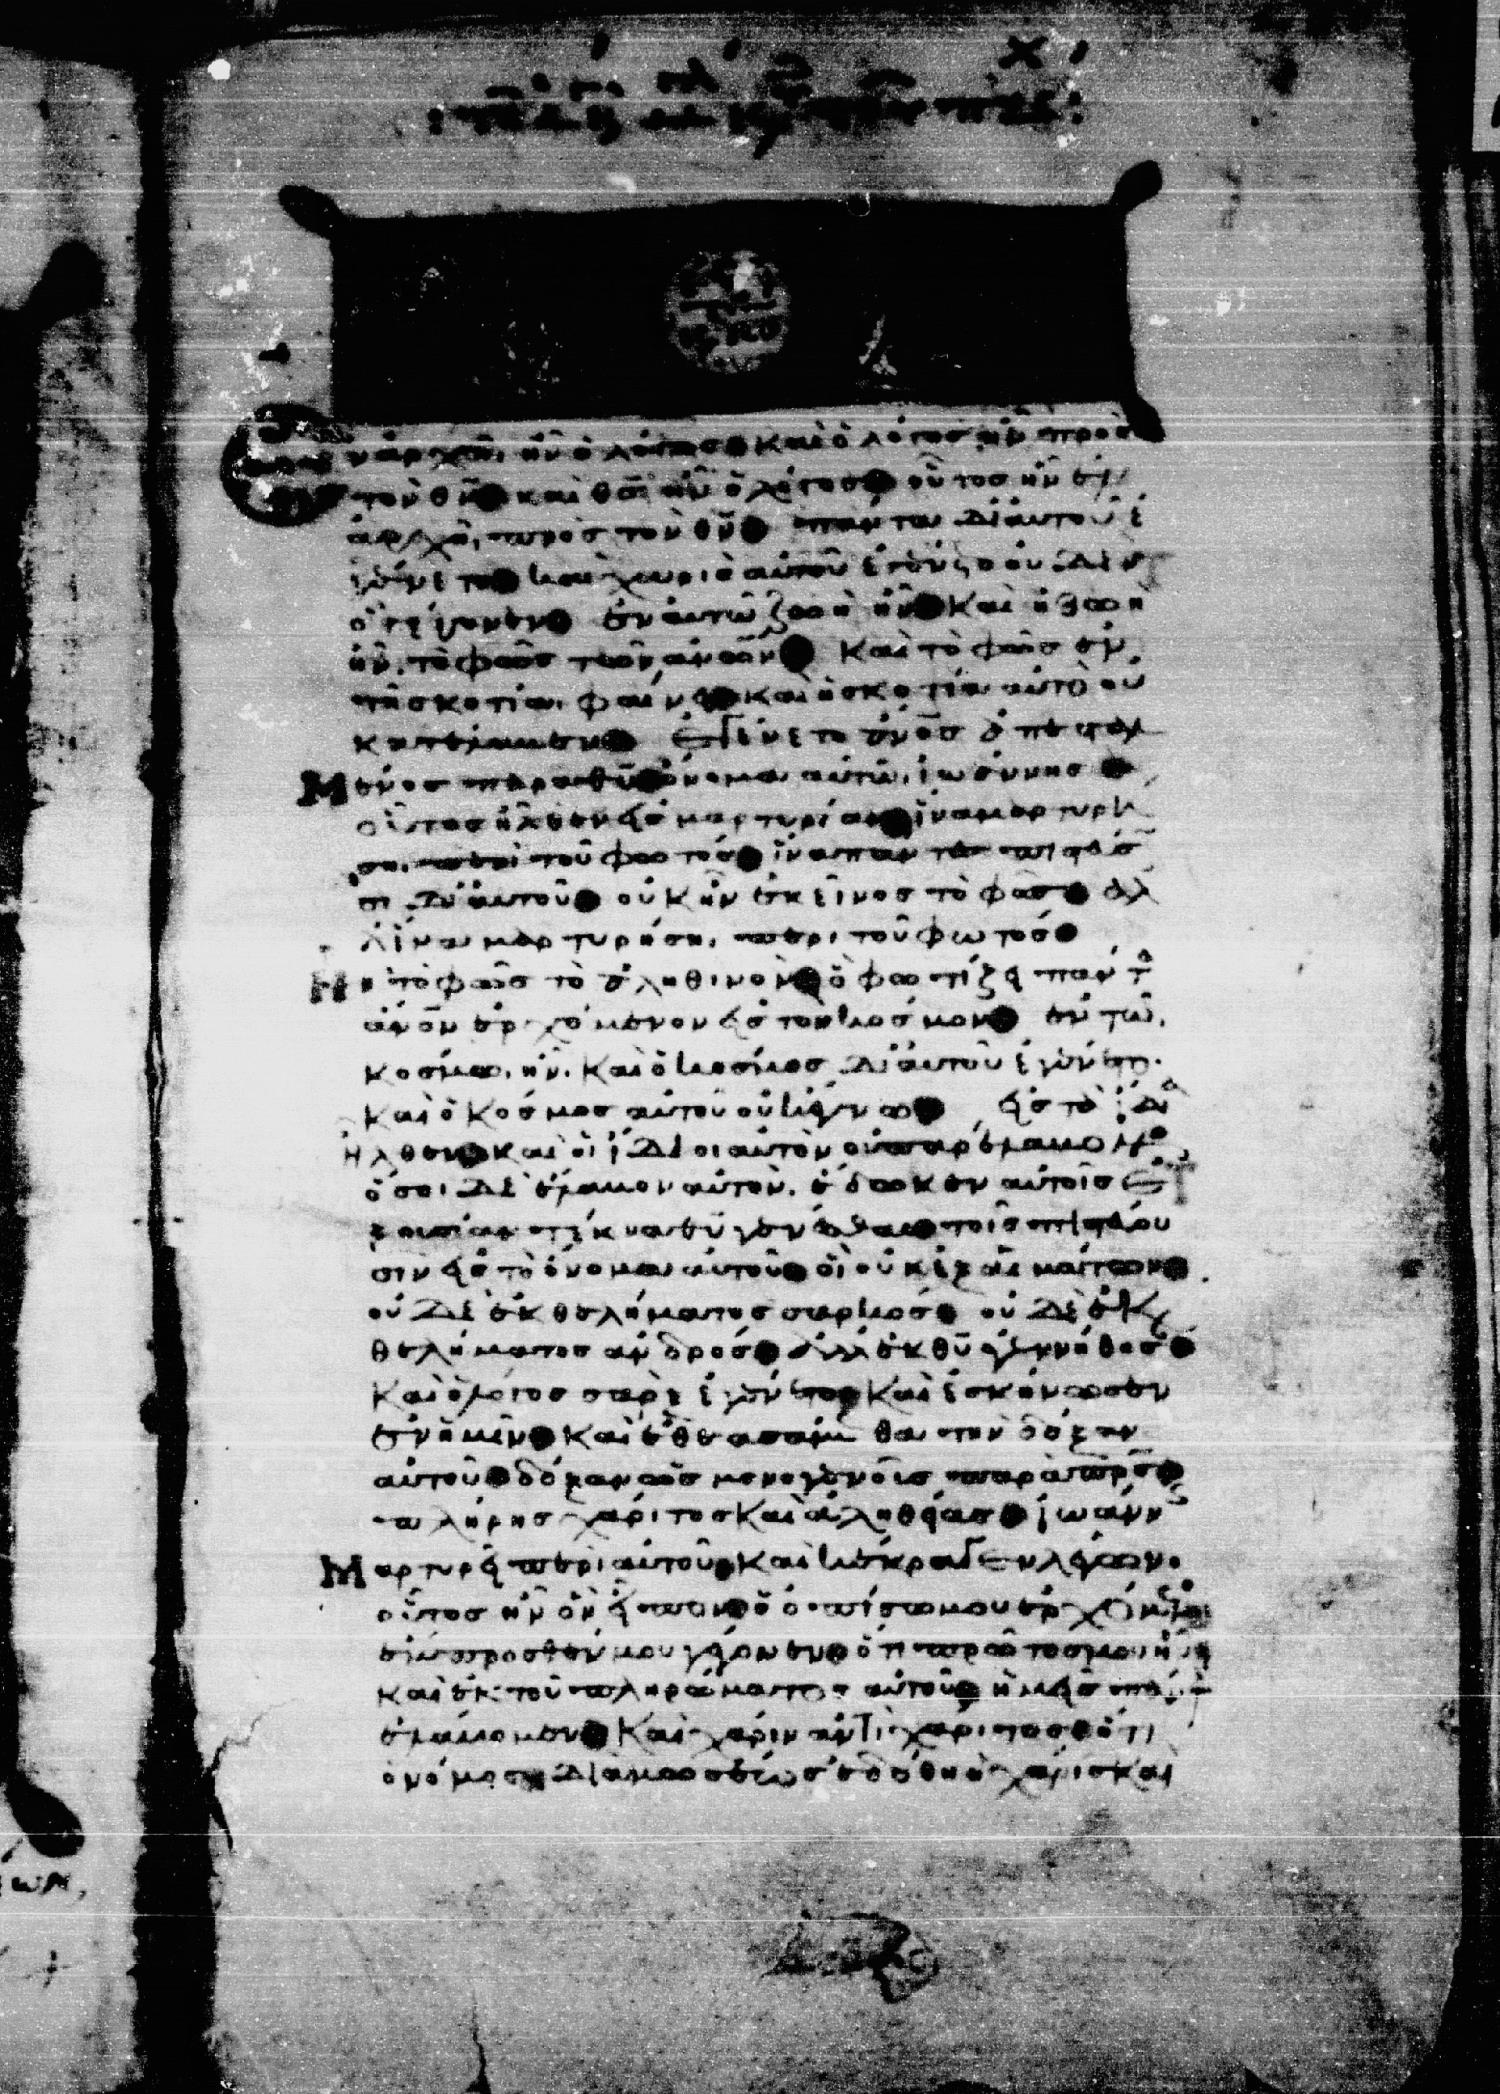 ν ἀρχῆ ἦν ὁ λόγοσ καὶ ὁ λόγοσ ἦν πρὸσ
τὸν θν καὶ θσ ἦν ὁ λόγοσ οὗτοσ ἦν ἐν
ἀρχῆ πρὸσ τὸν θν πάντα δι αὐτοῦ ἐ
γένετο καὶ χωρὶσ αὐτοῦ ἐγένετο οὐδὲν
ὃ γέγονεν ἐν αὐτῶ ζωὴ ἦν καὶ ἡ ζωὴ
ἦν τὸ φῶσ τῶν ανων καὶ τὸ φῶσ ἐν
τῆ σκοτία φαίνει καὶ ἡ σκοτία αὐτὸ οὐ
κατέλαβεν ἐγένετο ανοσ ἀπεσταλ
Μένοσ παρα θυ ὄνομα αὐτῶ ἰωάννησ
οὗτοσ ἦλθεν εἰσ μαρτυρίαν ἵνα μαρτυρή
ση περὶ τοῦ φωτόσ ἵνα πάντεσ πιστεύσω
σι δι αὐτοῦ οὐκ ἦν ἐκεῖνοσ τὸ φῶσ ἀλ
λ ἵνα μαρτυρήση περὶ τοῦ φωτόσ
Ην τὸ φῶσ τὸ ἀληθινὸν ὃ φωτίζει πάντα
ανον ἐρχόμενον εἰσ τον κόσμον ἐν τῶ
κόσμω ἦν καὶ ὁ κόσμοσ δι αὐτοῦ ἐγένετο
καὶ ὁ κόσμοσ αὐτον οὐκ ἔγνω εἰσ τὰ ἴδια
ἦλθεν καὶ οἱ ἴδιοι αὐτὸν οὐ παρέλαβον
ὅσοι δὲ ἔλαβον αὐτὸν ἔδωκεν αὐτοῖσ ἐ
ξουσίαν τέκνα θυ γενέσθαι τοῖσ πιστεύου
σιν εἰσ τὸ ὄνομα αὐτοῦ οἳ οὐκ ἐξ αἱμάτων
οὐδὲ ἐκ θελήματοσ σαρκόσ οὐδὲ ἐκ
θελήματοσ ανδρόσ ἀλλ ἐκ θυ ἐγεννήθησαν
καὶ ὁ λόγοσ σὰρξ ἐγένετο καὶ ἐσκήνωσεν
ἐν ἡμῖν καὶ ἐθεασάμεθα τὴν δόξαν
αὐτοῦ δόξαν ὡσ μονογενοῦσ παρὰ πρσ
πλήρησ χάριτοσ καὶ ἀληθείασ ἰωάννησ
Μαρτυρεῖ περὶ αὐτοῦ καὶ κέκραγεν λέγων
οὗτοσ ἦν ὃν εἶπον ὁ ὀπίσω μου ἐρχόμενοσ
ἔμπροσθέν μου γέγονεν ὅτι πρῶτοσ μου ἦν
καὶ ἐκ τοῦ πληρώματοσ αὐτοῦ ἡμεῖσ πάντεσ
ἐλάβομεν καὶ χάριν ἀντὶ χάριτοσ ὅτι
ὁ νόμοσ διὰ μωσέωσ ἐδόθη ἡ χάρισ καὶ